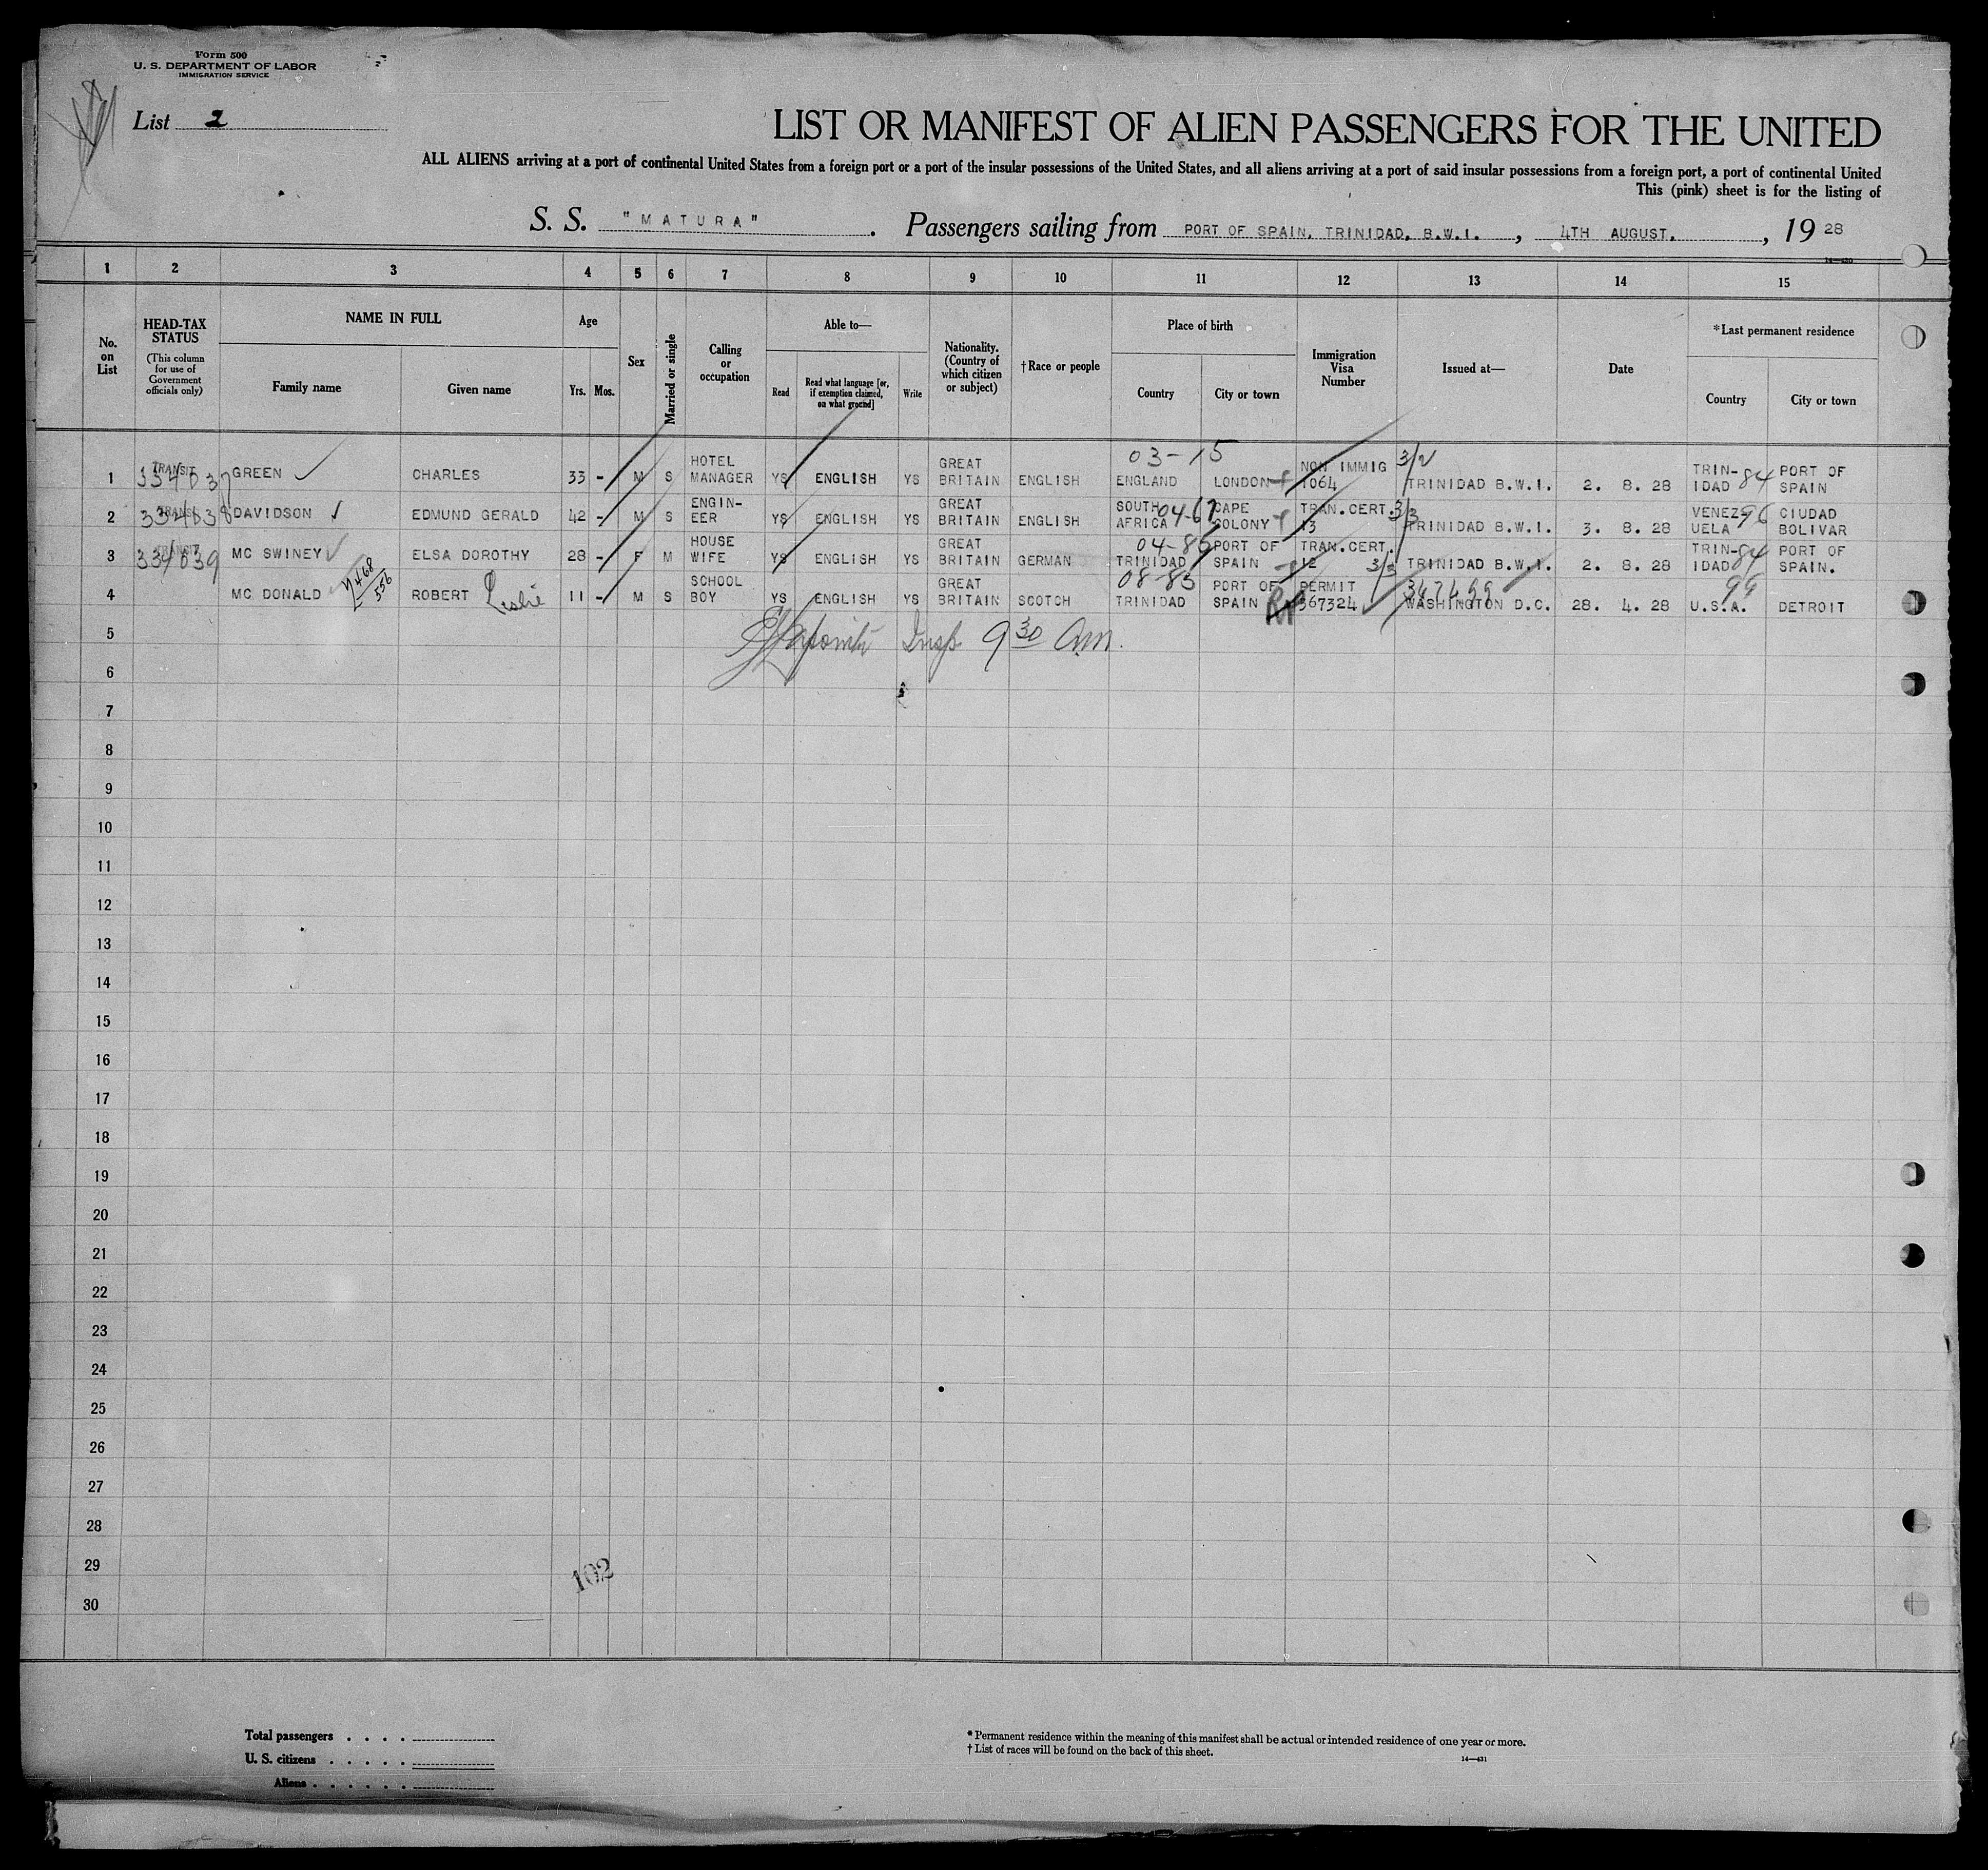 Form 500
U. S. DEPARTMENT OF LABOR
IMMIGRATION SERVICE
List 2
LIST OR MANIFEST OF ALIEN PASSENGERS FOR THE UNITED
ALL ALIENS arriving at a port of continental United States from a foreign port or a port of the insular possessions of the United States, and all aliens arriving at a port of said insular possessions from a foreign port, a port of continental United
This (pink) sheet is for the listing of
S. S. "MATURA". Passengers sailing from PORT OF SPAIN, TRINIDAD, B.W.I., 4TH AUGUST, 1928
14—430
1 2 3 4 5 6 7 8 9 10 11 12 13 14 15
No. on List
HEAD-TAX STATUS
(This column for use of Government officials only)
NAME IN FULL
Family name
Given name
Age
Yrs. Mos.
Sex
Married or single
Calling or occupation
Able to—
Read
Read what language [or, if exemption claimed, on what ground]
Write
Nationality. (Country of which citizen or subject)
† Race or people
Place of birth
Country
City or town
Immigration Visa Number
Issued at—
Date
*Last permanent residence
Country
City or town
1 TRANSIT GREEN CHARLES 33 - M S HOTEL MANAGER YS ENGLISH YS GREAT BRITAIN ENGLISH 03-15 ENGLAND LONDON NON IMMIG 1064 3/2 TRINIDAD B.W.I. 2. 8. 28 TRIN-IDAD 84 PORT OF SPAIN
2 334838 DAVIDSON EDMUND GERALD 42 - M S ENGIN-EER YS ENGLISH YS GREAT BRITAIN ENGLISH SOUTH AFRICA 04-67 CAPE COLONY TRAN.CERT. 13 3/3 TRINIDAD B.W.I. 3. 8. 28 VENEZ-UELA 96 CIUDAD BOLIVAR
3 TRANSIT MC SWINEY ELSA DOROTHY 28 - F M HOUSE WIFE YS ENGLISH YS GREAT BRITAIN GERMAN TRINIDAD PORT OF SPAIN TRAN.CERT. 12 3/3 TRINIDAD B.W.I. 2. 8. 28 TRIN-IDAD 84 PORT OF SPAIN.
4 MC DONALD ROBERT Leslie 11 - M S SCHOOL BOY YS ENGLISH YS GREAT BRITAIN SCOTCH 08-83 TRINIDAD PORT OF SPAIN PERMIT 367324 WASHINGTON D.C. 28. 4. 28 99 U.S.A. DETROIT
5 Insp 9 30 Am.
6
7
8
9
10
11
12
13
14
15
16
17
18
19
20
21
22
23
24
25
26
27
28
29
102
30
Total passengers
U. S. citizens
Aliens
* Permanent residence within the meaning of this manifest shall be actual or intended residence of one year or more.
† List of races will be found on the back of this sheet.
14—431